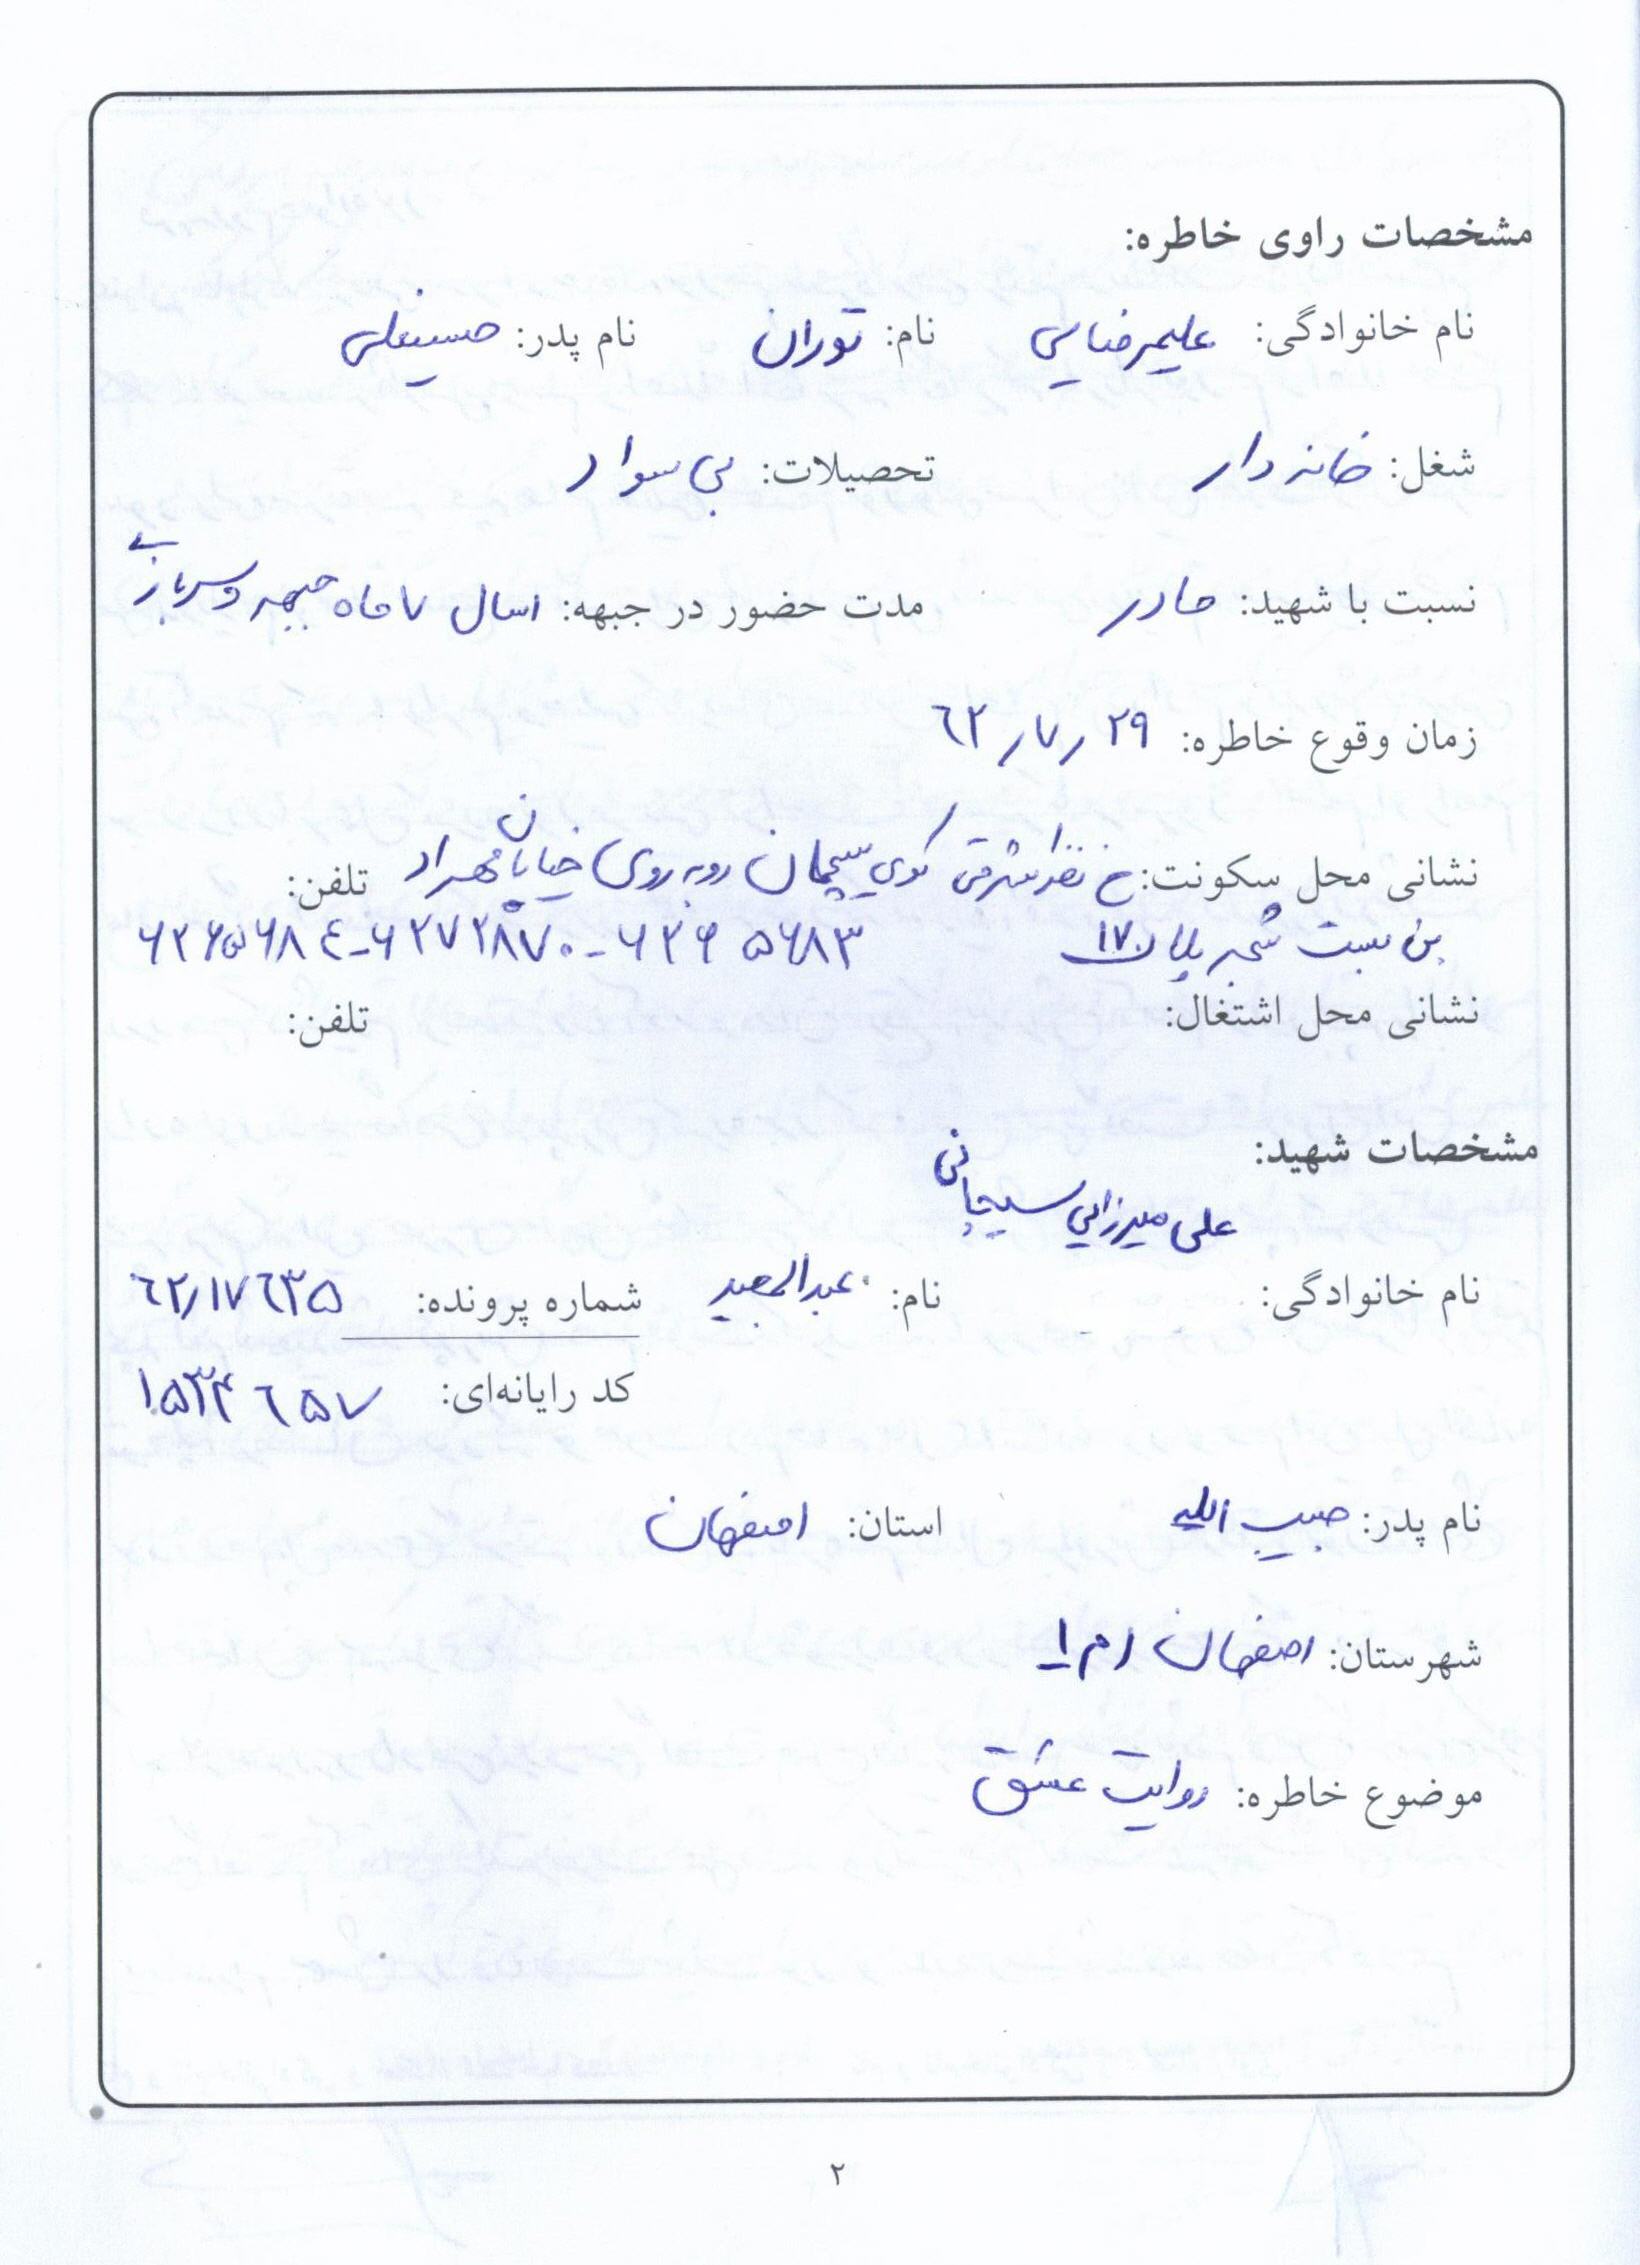 مشخصات راوی خاطره:
نام خانوادگی: علیمرضایی نام: توران نام پدر: حسینعلی
شغل: خانه دار تحصیلات: بی سواد
نسبت با شهید: مادر مدت حضور در جبهه: ۱سال ۷ ماه جبهه و سربازی
زمان وقوع خاطره: ۶۲/۷/۲۹
نشانی محل سکونت: خ نظر شرقی کوی سیچان روبه روی خیابان مهرداد تلفن:
بن بست شجره پلاک ۱۷ ۶۲۶۵۶۸۳ - ۶۲۷۲۸۷۰ - ۶۲۶۵۶۸۴
نشانی محل اشتغال: تلفن:
مشخصات شهید:
علی میرزایی سیچانی
نام خانوادگی: نام: عبدالمجید شماره پرونده: ۶۲/۱۷۶۳۵
کد رایانه‌ای: ۱۵۳۴۶۵۷
نام پدر: حبیب الله استان: اصفهان
شهرستان: اصفهان م ۱
موضوع خاطره: روایت عشق
۲